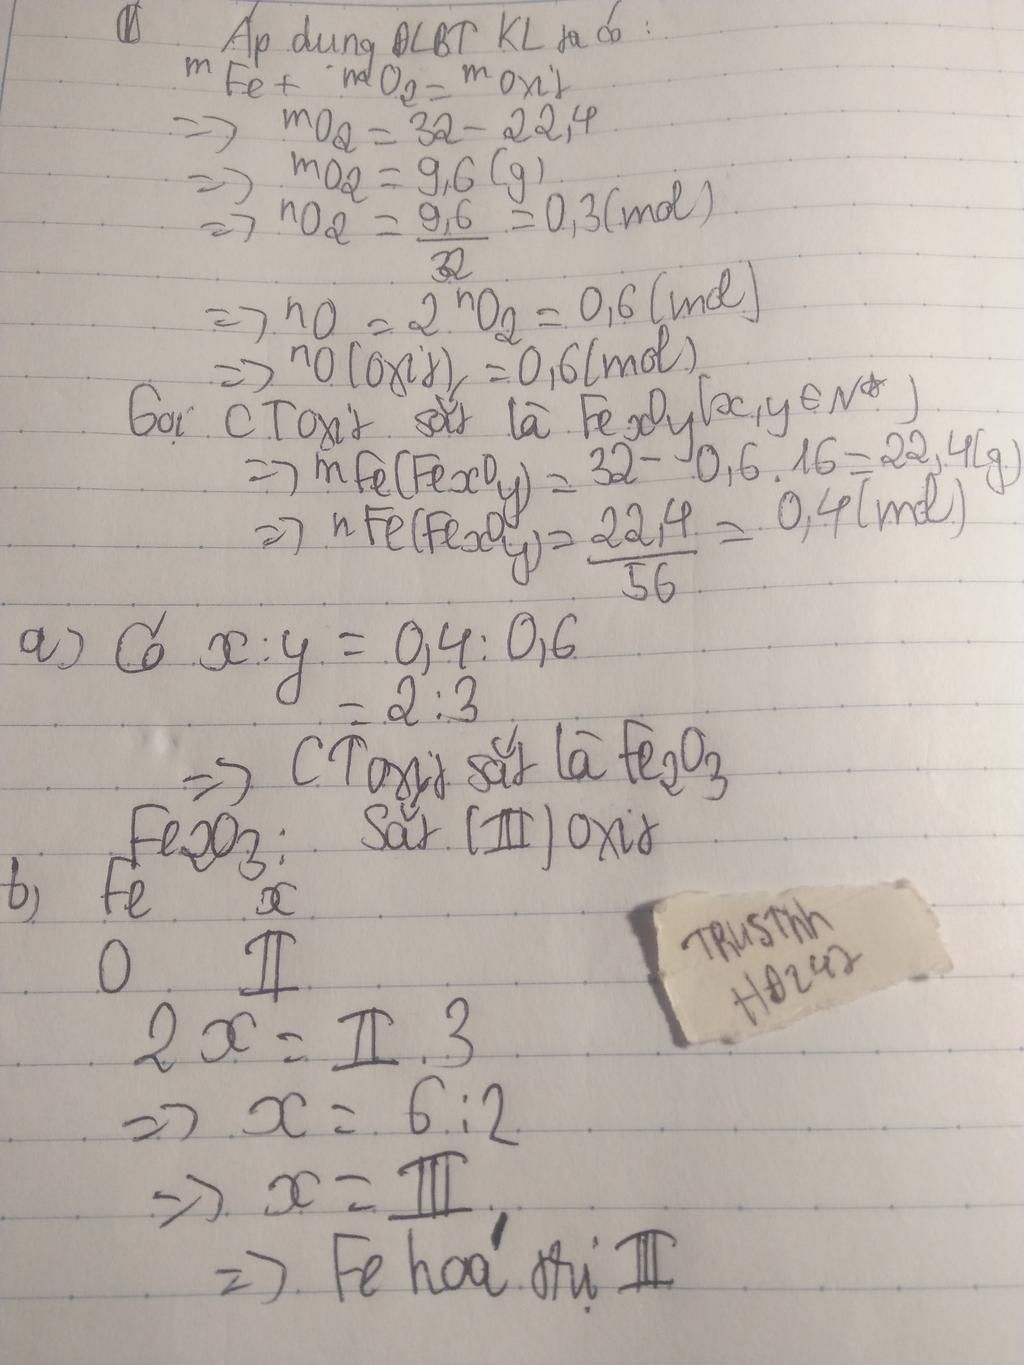 Áp dụng ĐLBT KL ta có :
mFe + mO2 = m oxit
=> mO2 = 32 - 22,4
=> mO2 = 9,6 (g)
=> nO2 = 9,6/32 = 0,3 (mol)
=> nO = 2 nO2 = 0,6 (mol)
=> nO (oxit) = 0,6 (mol)
Gọi CT oxit sắt là FexOy (x,y ∈ N*)
=> mFe (FexOy) = 32 - 0,6 . 16 = 22,4 (g)
=> nFe (FexOy) = 22,4/56 = 0,4 (mol)
a) Có x : y = 0,4 : 0,6
= 2 : 3
=> CT oxit sắt là Fe2O3
Fe2O3 : Sắt (III) oxit
b) Fe x
O II
2x = II . 3
=> x = 6 : 2
=> x = III
=> Fe hoá trị III
TRUSThh
HĐ247